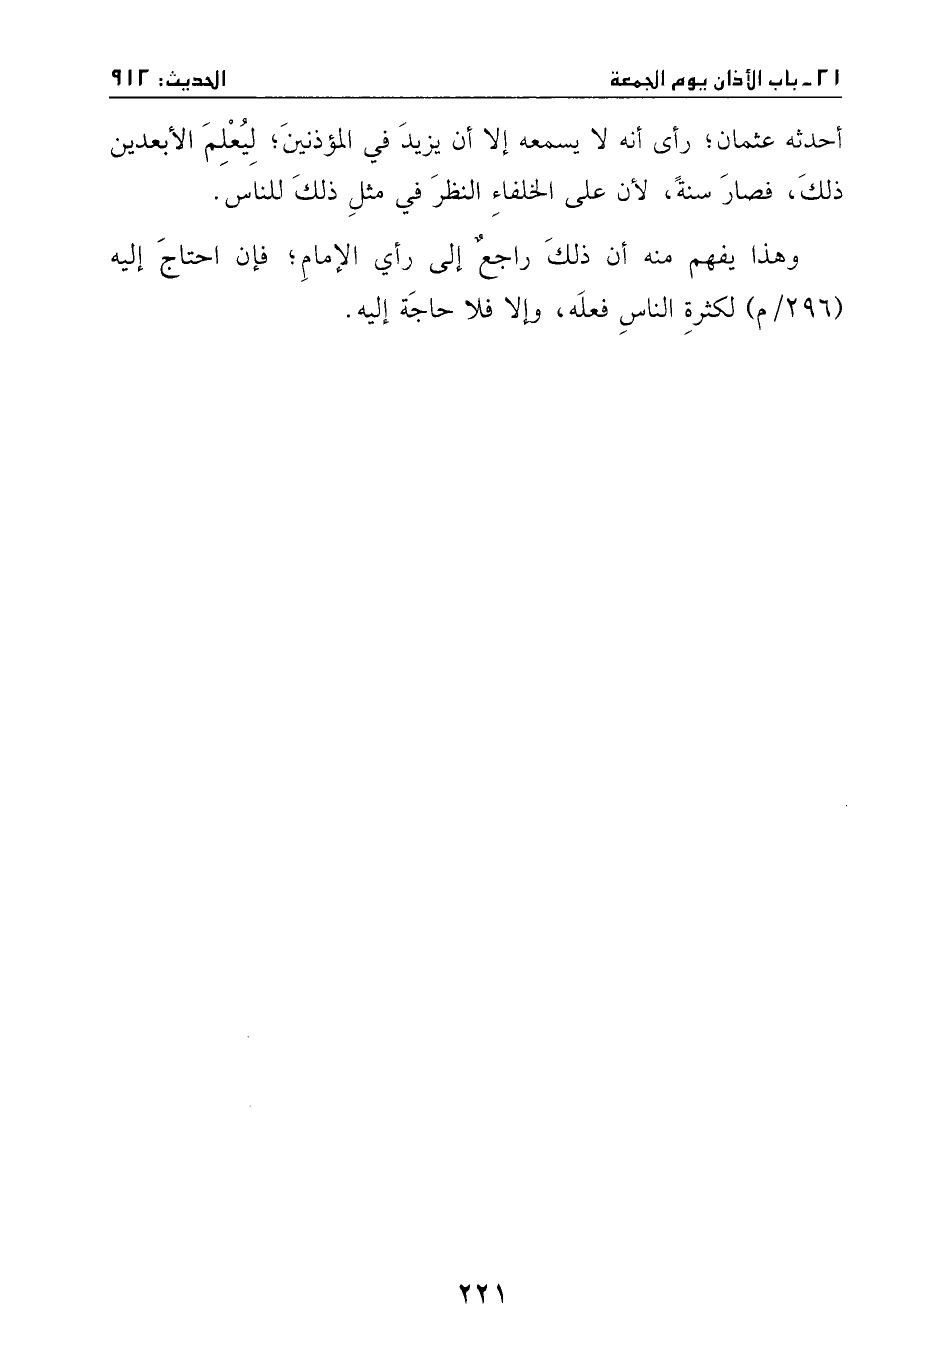 ٢١ - باب الأذان يوم الجمعة الحديث: ٩١٢
أحدثه عثمان؛ رأى أنه لا يسمعه إلا أن يزيدَ في المؤذنينَ؛ لِيُعْلِمَ الأبعدِين
ذلكَ، فصارَ سنةً، لأن على الخلفاءِ النظرَ في مثلِ ذلكَ للناس.
وهذا يفهم منه أن ذلكَ راجعٌ إلى رأي الإمامِ؛ فإن احتاجَ إليه
(٢٩٦/م) لكثرةِ الناسِ فعلَه، وإلا فلا حاجَة إليه.
٢٢١